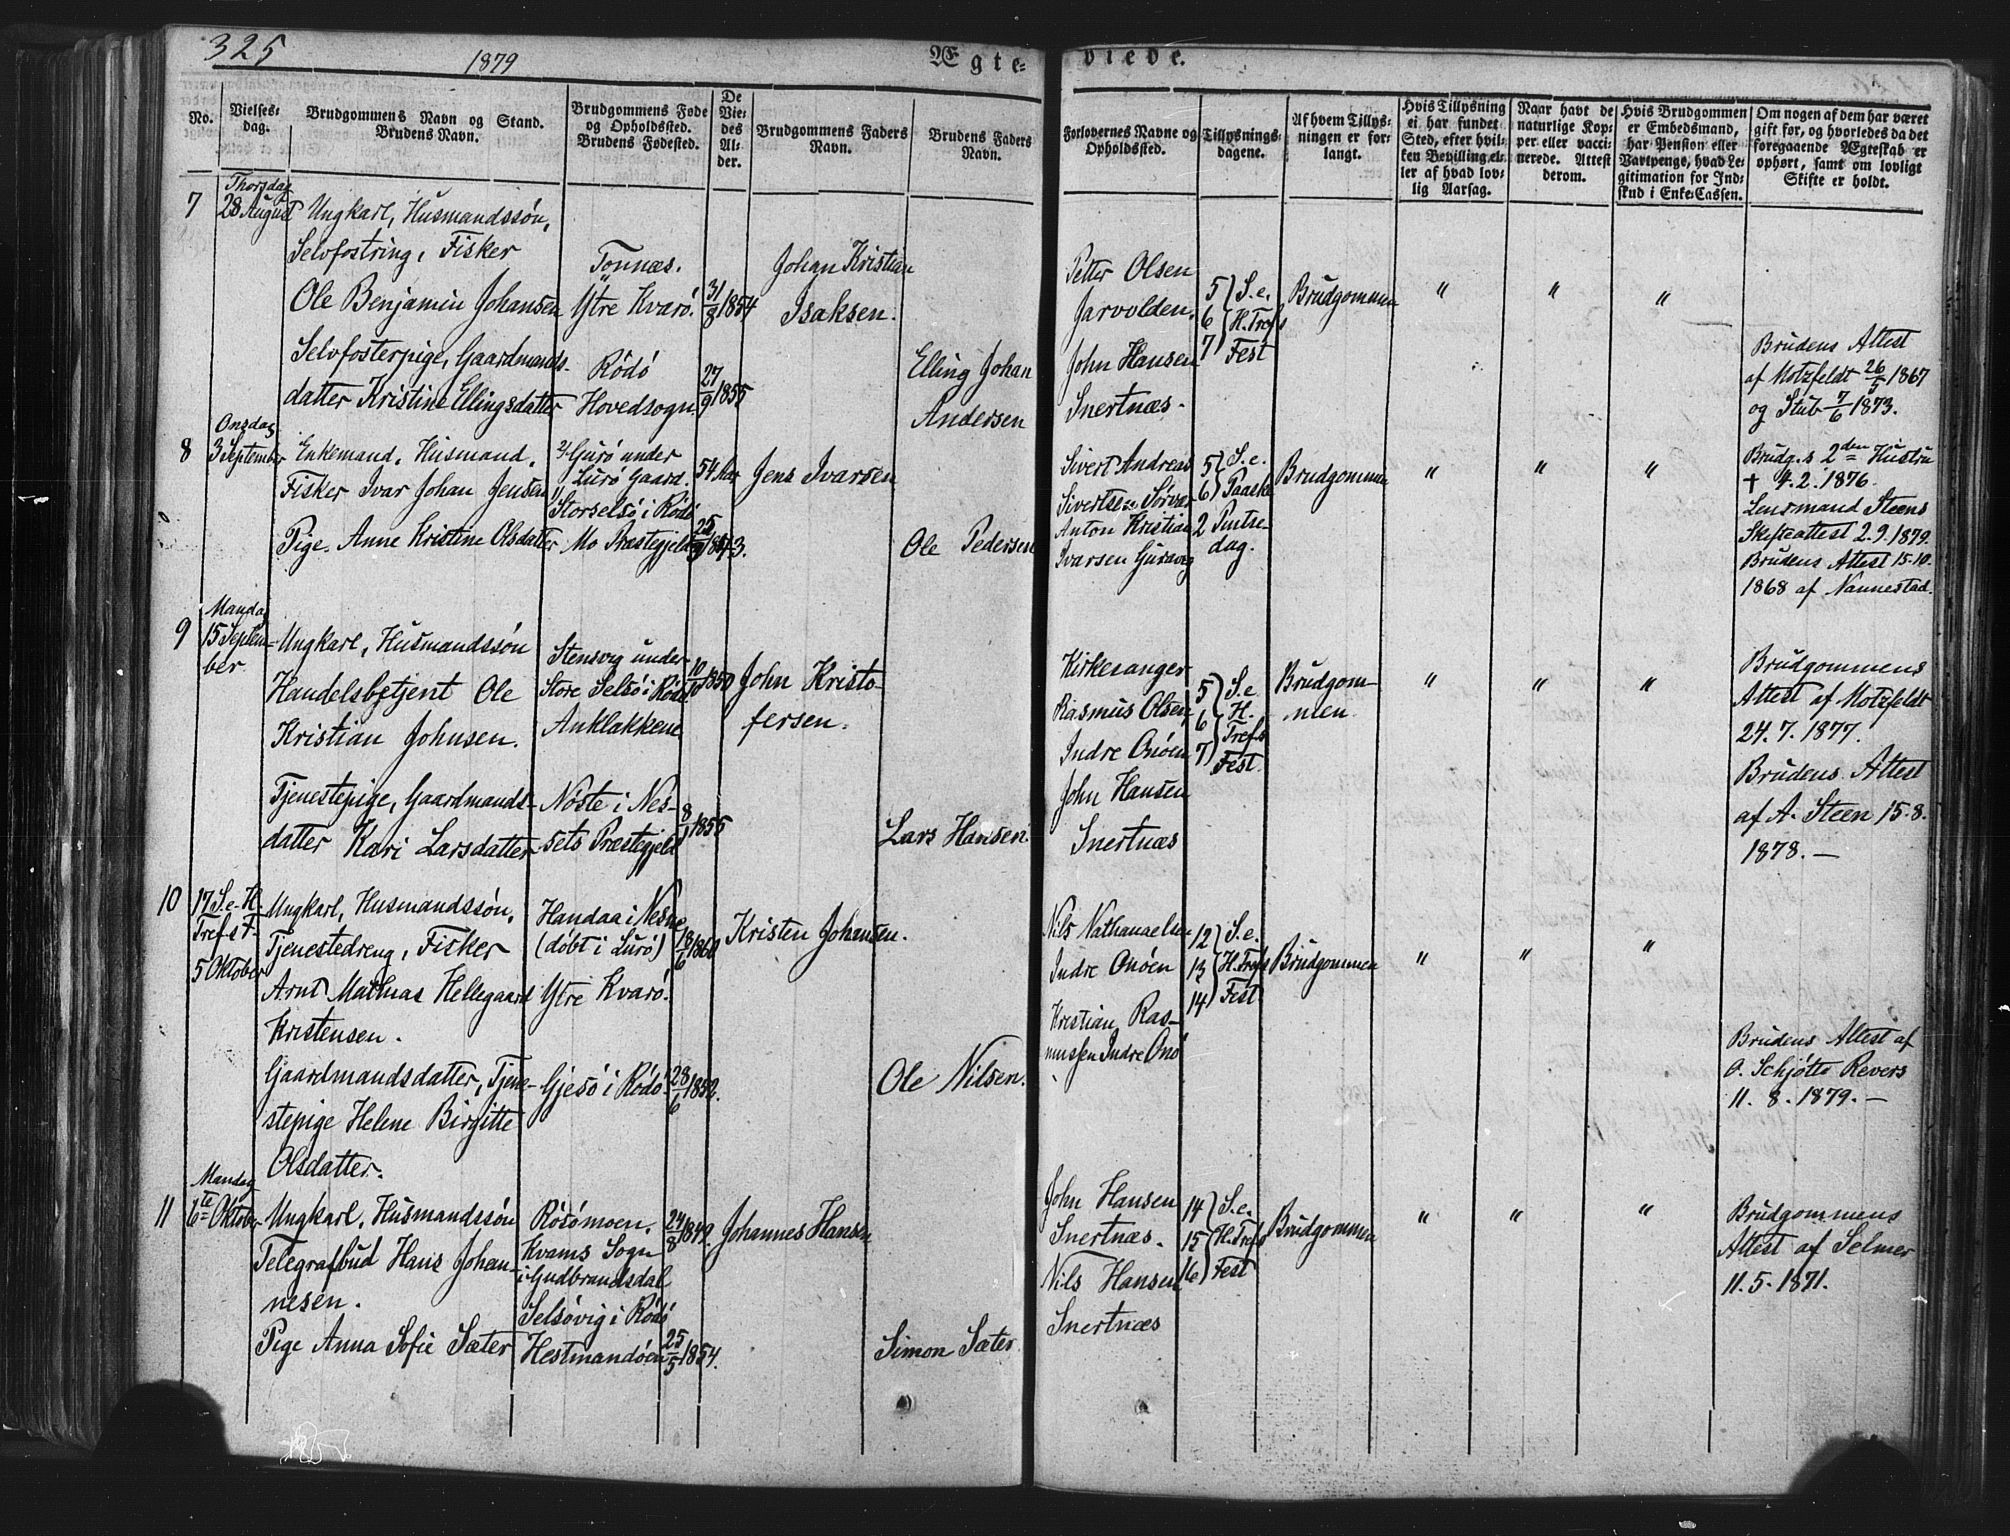 325
1879
Ægte-
viede.
No.
Vielses-
dag.
Brudgommens Navn og Stand.
Brudens Navn.
Brudgommens Føde
og Opholdssted.
Brudens Fødested.
De
Vie-
des
Al-
der.
Brudgommens Faders
Navn.
Brudens Faders
Navn.
Forlovernes Navne og
Opholdssted.
Tillysnings-
dagene.
Af hvem Tillys-
ningen er for-
langt.
Hvis Tillysning
ei har fundet
Sted, efter hvil-
ken Bevilling el-
ler af hvad lov-
lig Aarsag.
Naar havt de
naturlige Kop-
per eller vacci-
nerede. Attest
derom.
Hvis Brudgommen
er Embedsmand,
har Pension eller
Vartpenge, hvad Le-
gitimation for Ind-
skud i Enke-Cassen.
Om nogen af dem har været
gift før, og hvorledes da det
foregaaende Ægteskab er
ophørt, samt om lovligt
Skifte er holdt.
7
Thorsdag
28 August
Ungkarl, Husmandssøn,
Selvfostring, Fisker
Ole Benjamin Johansen
Tonnæs.
Ytre Kvarö.
31/8 1854
Johan Kristian
Isaksen.
Petter Olsen
Jarvolden.
5 S. e.
6 H. Tref s
7 Fest
Brudgommen
" " "
Selvfosterpige, Gaardmands-
datter Kristine Ellingsdatter
Rödö
Hovedsogn
27/9 1855
Elling Johan
Andersen
John Hansen
Snertnæs.
Brudens Attest
af Motzfeldt 26/5 1867
og Stub 7/6 1873.
8
Onsdag
3 September
Enkemand, Husmand,
Fisker Ivar Johan Jensen
Gurö under
Lurö Gaard.
Storselsö i Rödö
54 Aar
Jens Ivarsen
Sivert Andreas
Sivertsen Sörvær
5 S. e.
6 Paaske
Brudgommen
" " "
Brudg.s 2den Hustru
† 4. 2. 1876.
Lensmand Steens
Skifteattest 2.9.1879.
Pige. Anne Kristine Olsdatter
Mo Præstegjeld
1843.
Ole Pedersen
Anton Kristian
Ivarsen Guravig
2 Pintse-
dag.
Brudens Attest 15.10.
1868 af Nannestad.
9
Mandag
15 Septem-
ber
Ungkarl, Husmandssön
Handelsbetjent Ole
Kristian Johnsen.
Stensvig under
Store Selsö i Rödö
Anklakkene
1850
John Kristo-
fersen.
Kirkesanger
Rasmus Olsen
Indre Onöen
5 S. e.
6 H.
7 Tref.s
Fest.
Brudgom-
men.
" " "
Brudgommens
Attest af Motzfeldt
24. 7. 1877.
Tjenestepige, Gaardmands-
datter Kari Larsdatter
Nöste i Nes-
sets Præstegjeld
8/1 1855
Lars Hansen.
John Hansen
Snertnæs
Brudens Attest
af A. Steen 15. 8.
1878. —
10
17 S. e. H.
Tref s F.
5 Oktober
Ungkarl, Husmandssön,
Tjenestedreng, Fisker
Arnt Mathias Hellegaard
Kristensen.
Handaa i Nesne
(döbt i Lurö)
Ytre Kvarö.
18/6 1860
Kristen Johansen.
Nils Nathanaelsen
Indre Onöen
Kristian Ras-
mussen Indre Onö
12 S. e.
13 H. Tref s
14 Fest
Brudgommen
" " "
Gaardmandsdatter, Tjene-
stepige Helene Birgitte
Olsdatter.
Gjesö i Rödö.
28/6 1852.
Ole Nilsen.
Brudens Attest af
O. Schjötts Revers
11. 8. 1879. —
11
Mandag
6te Oktober
Ungkarl, Husmandssön
Telegrafbud Hans Johan-
nesen.
Rosömoen,
Kvams Sogn
i Gudbrandsdal
Selsövig i Rödö
24/8 1849.
Johannes Hansen
John Hansen
Snertnæs.
Nils Hansen
Snertnæs
14 S. e.
15 H. Tref s
16 Fest
Brudgommen
" " "
Brudgommens
Attest af Selmer
11. 5. 1871.
Pige Anna Sofie Sæter
Hestmandöen
25/5 1854.
Simon Sæter